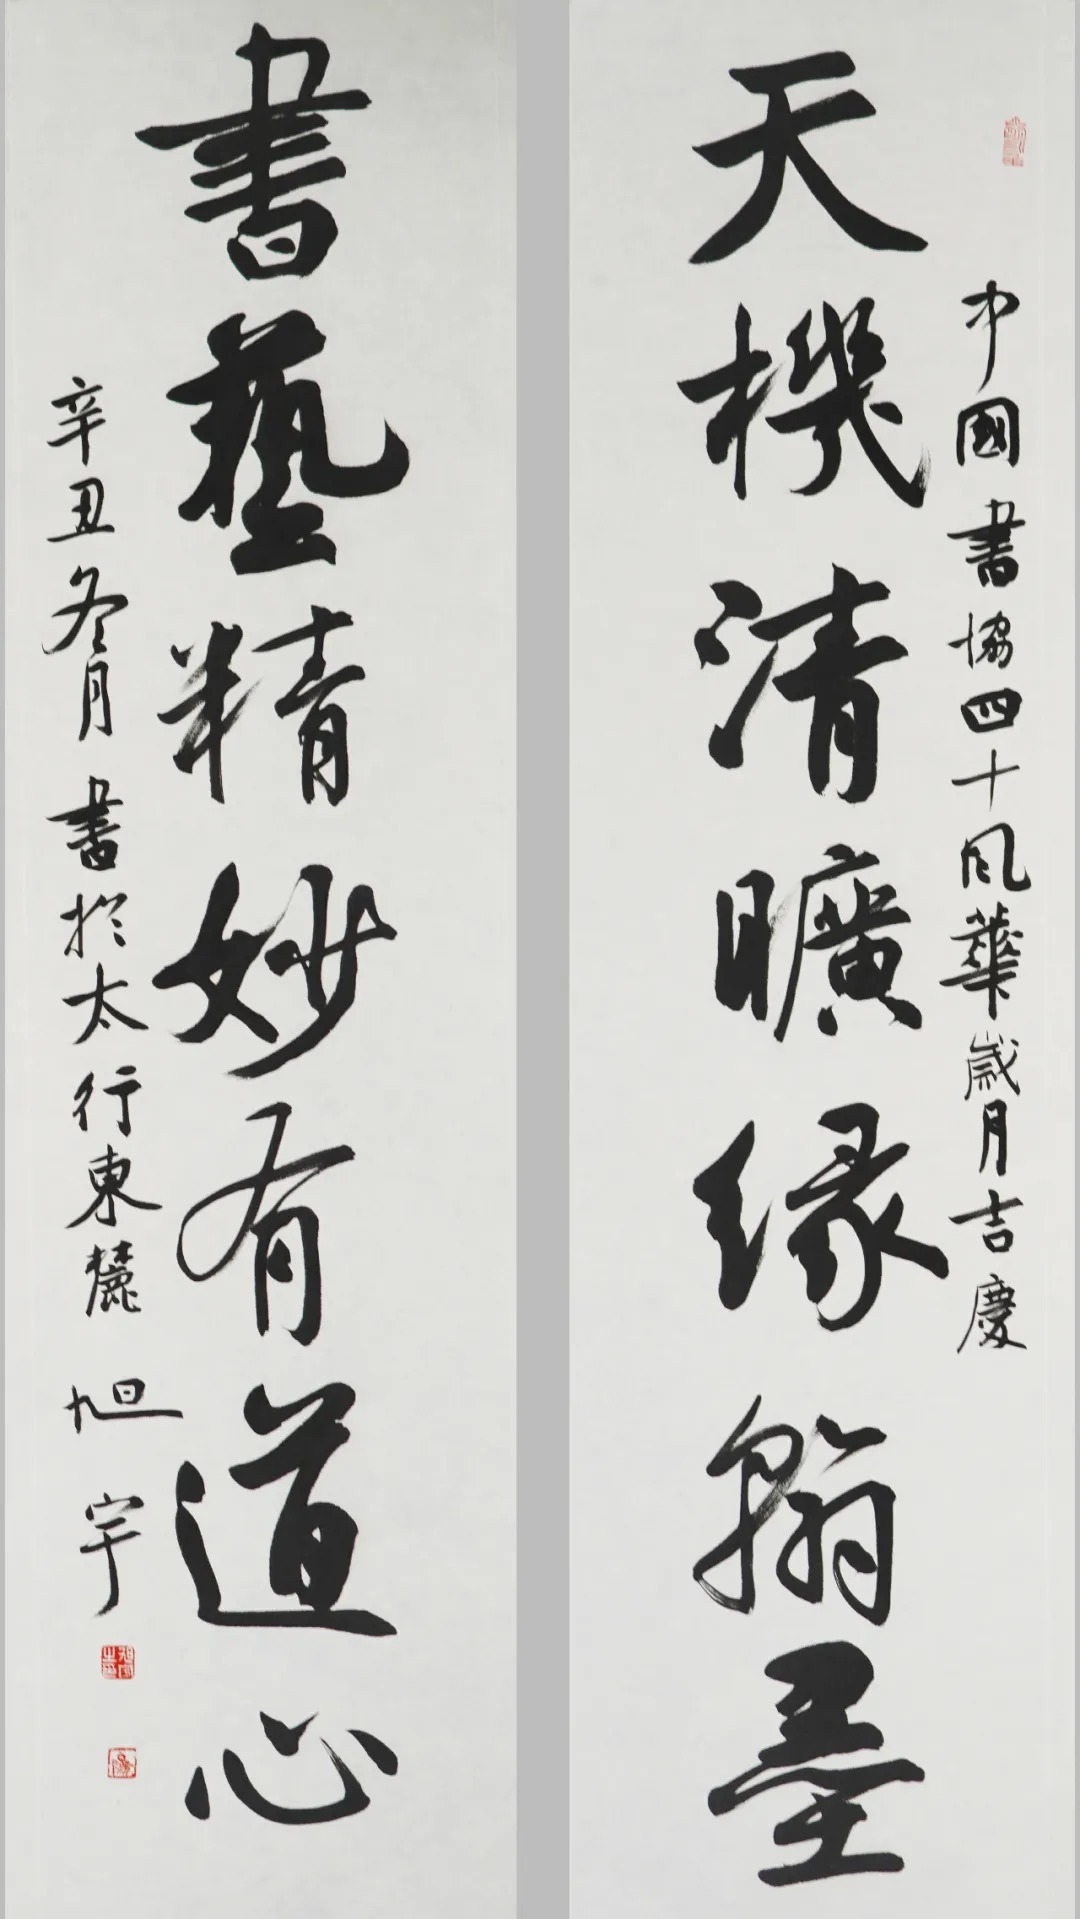 中國書協四十風華歲月吉慶
天機清曠緣翰墨
書藝精妙有道心
辛丑冬月書於太行東麓 旭宇